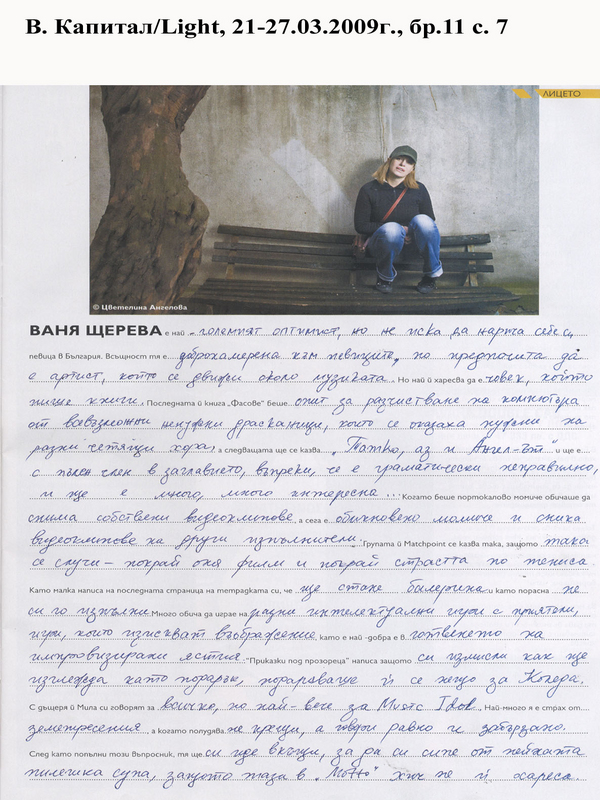 В. Капитал/Light, 21-27.03.2009г., бр.11 с. 7
ЛИЦЕТО
© Цветелина Ангелова
ВАНЯ ЩЕРЕВА е най - големият оптимист, но не иска да нарича себе си
певица в България. Всъщност тя е доброжамерена към певиците, но предпочита да
е артист, който се движи около музиката. Но най й харесва да е човек, който
пише книги. Последната й книга „Фасове" беше опит за разчистване на компютъра
от всевъзможни ненужни драсканици, които се оказаха нужни на
разни четящи хора, а следващата ще се казва „Татко, аз и Ангел-ът" и ще е
с пълен член в заглавието, въпреки, че е граматически неправилно,
и ще е много, много интересна ... Когато беше портокалово момиче обичаше да
снима собствени видеоклипове, а сега е обикновено момиче и снима
видеоклипове на други изпълнители. Групата й Matchpoint се казва така, защото така
се случи - покрай оня филм и покрай страстта по тениса
Като малка написа на последната страница на тетрадката си, че ще стане балерина и като порасна не
си го изпълни. Много обича да играе на разни интелектуални игри с приятели,
игри, които изискват въображение, като е най -добра е в готвенето на
импровизирани ястия. "Приказки под прозореца" написа защото си измисли как ще
изглежда като подарък, подаряваще й се нещо за Коледа.
С дъщеря й Мила си говорят за всичко, но най-вече за Music Idol. Най-много я е страх от
земетресения, а когато полудява не крещи, а говори равно и забързано.
След като попълни този въпросник, тя ще си иде вкъщи, за да си сипе от нейната
пилешка супа, защото тази в „Мотто" хич не й хареса.